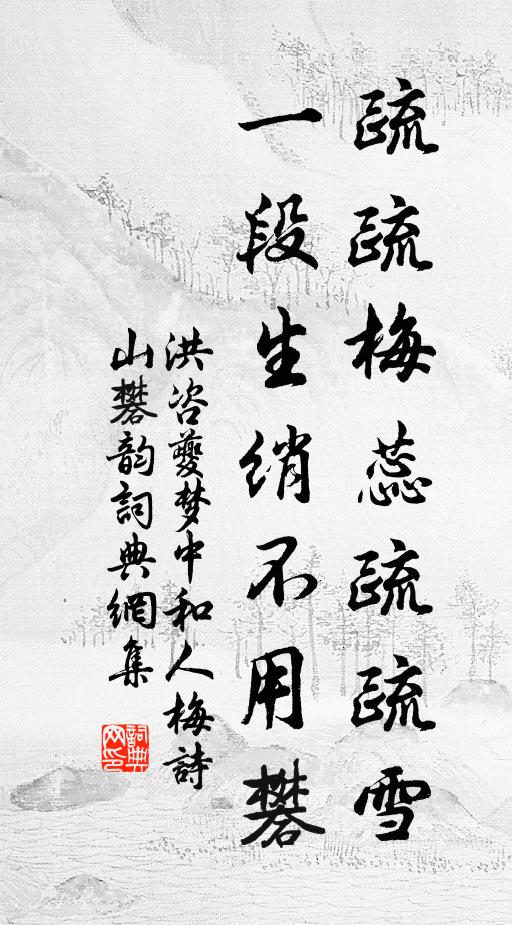 疏疏梅蕊疏疏雪
一段生綃不用礬
洪咨夔梦中和人梅詩
山礬韵詞典網集
詞典网印